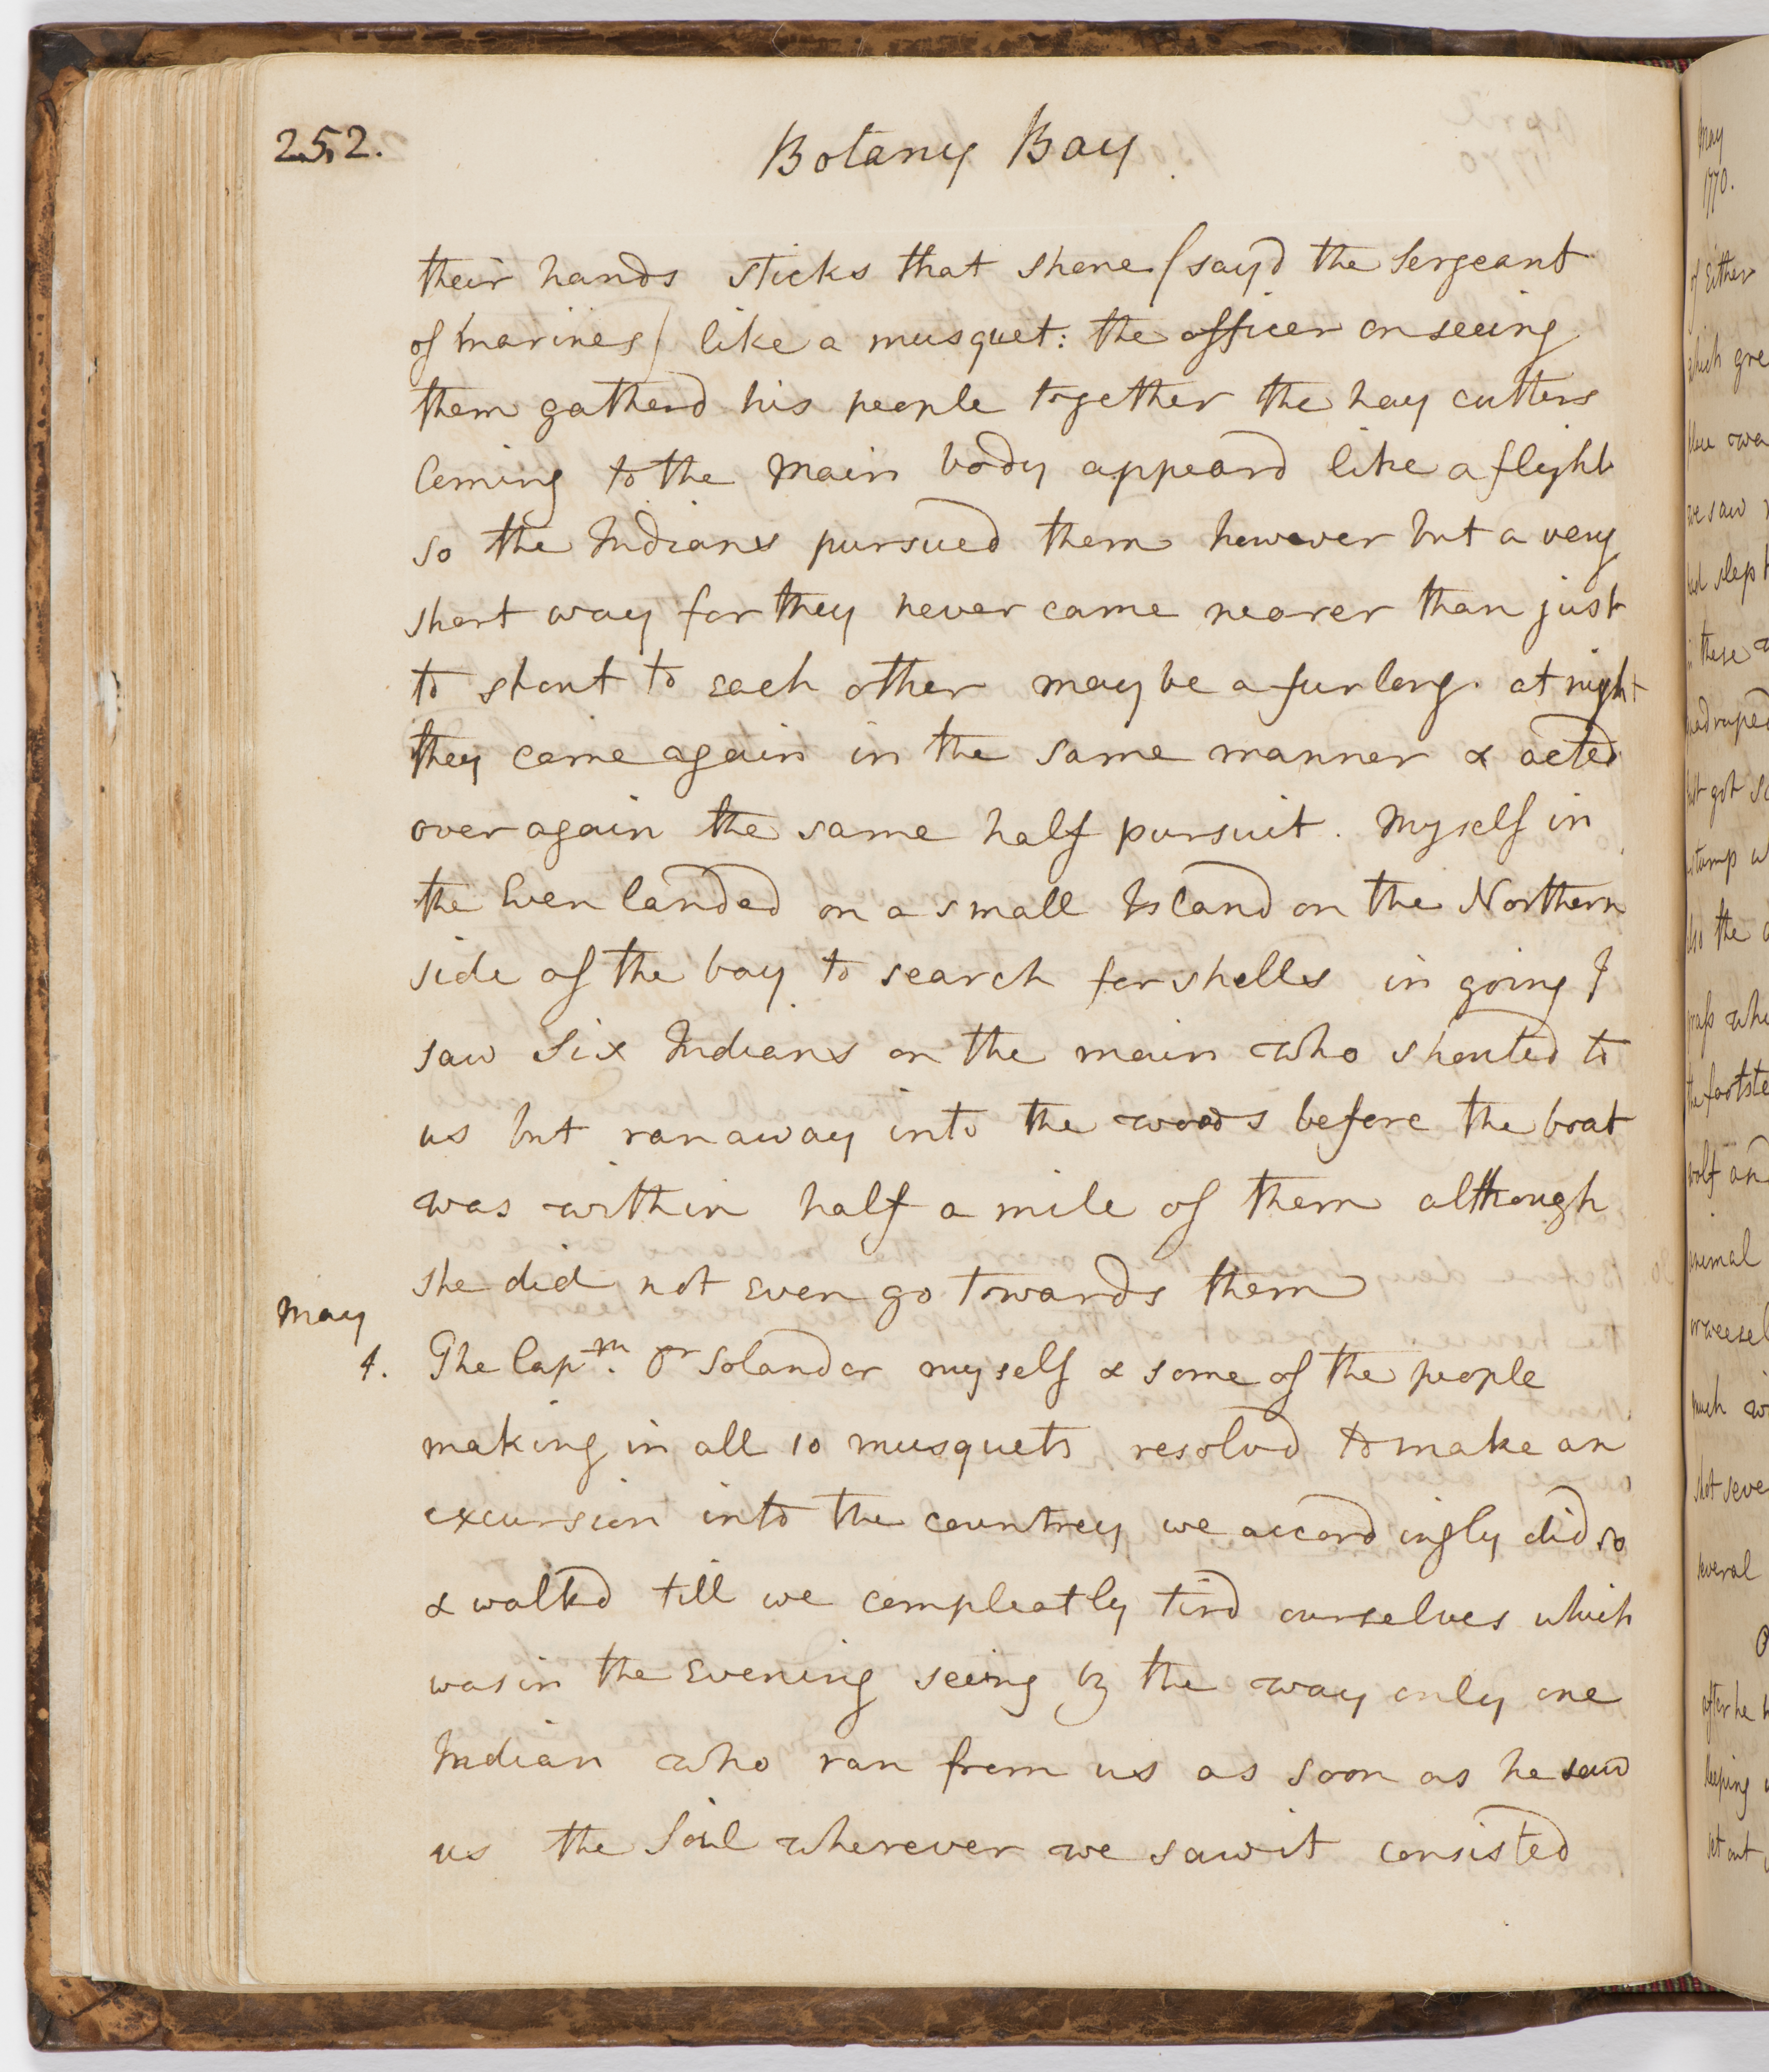 252.
Botany Bay
their hands sticks that shone (sayd the Sergeant
of marines) like a musquet: the officer on seeing
them gatherd his people together the hay cutters
Coming to the main body appeard like a flight
so the Indians pursued them however but a very
short way for they never came nearer than just
to shout to each other maybe a furlong. at night
they came again in the same manner & acted
over again the same half pursuit. Myself in
the Even landed on a small Island on the Northern
side of the bay to search for shells in going I
saw Six Indians on the main who shouted to
us but ran away into the woods before the boat
was within half a mile of them although
she did not Even go towards them
May
4. The Capᵗⁿ. Dʳ Solander myself & some of the people
making in all 10 musquets resolvd to make an
excursion into the countrey we accordingly did so
& walkd till we compleatly tird ourselves which
was in the Evening seeing by the way only one
Indian who ran from us as soon as he saw
us the Soil wherever we saw it consisted
May
1770.
of Either
which gre
place wa
we saw
had slept
in these
quadruped
but got so
stump w
also the
grass whi
the footste
wolf and
animal
or weesel
much wi
shot seve
several
after he
keeping
set out